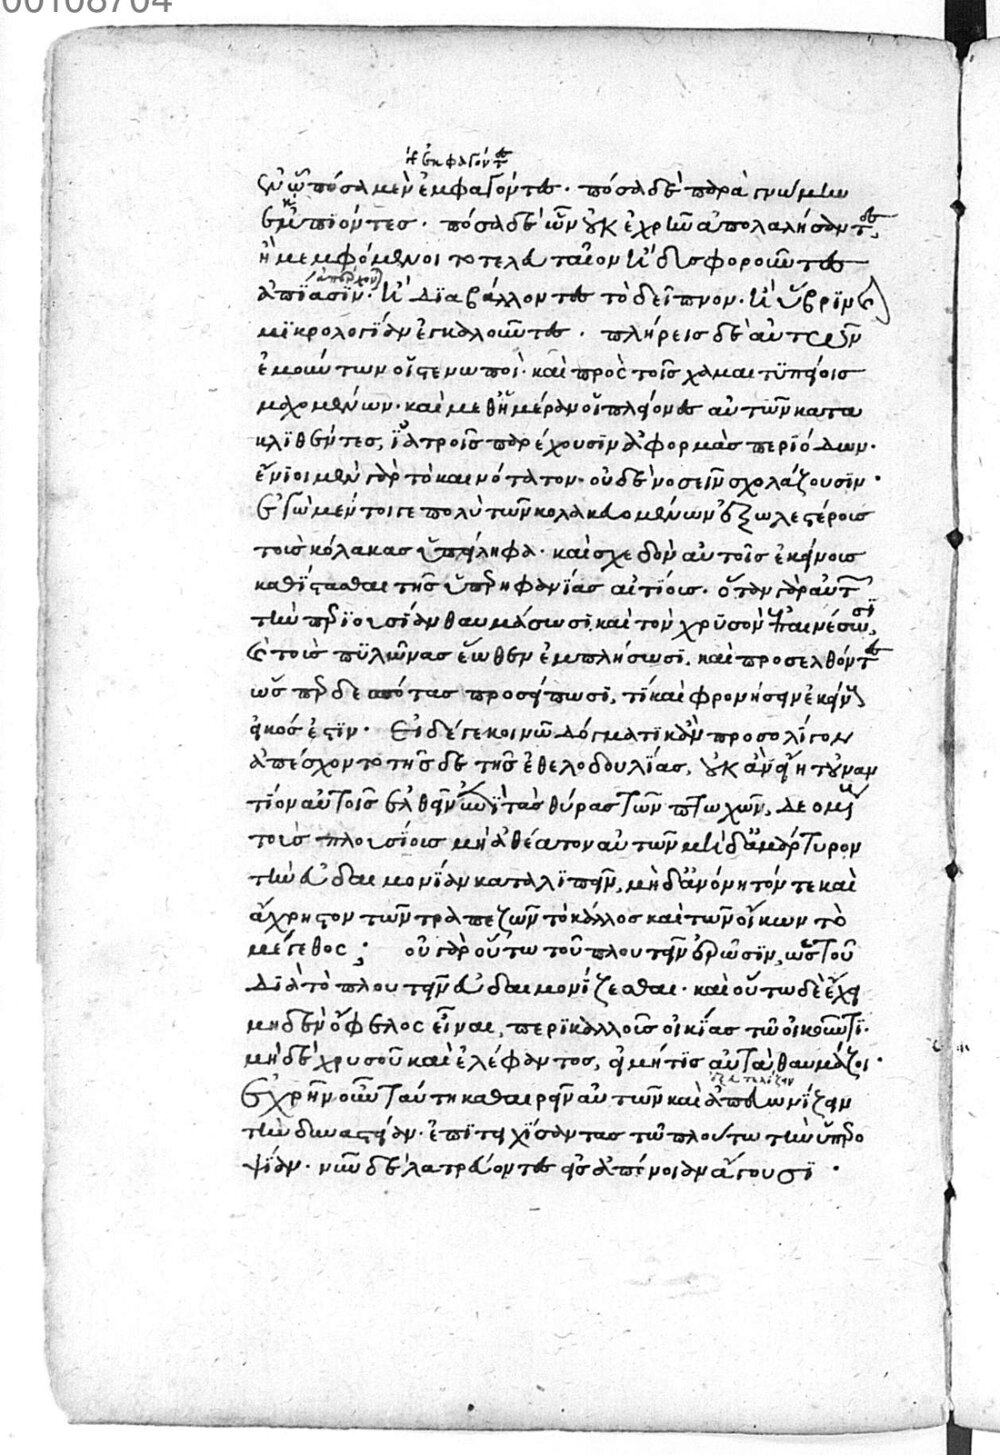 00108704
ἢ ἐκφαγόντες
ἐν ᾧ πόσα μὲν ἐμφαγόντες· πόσα δὲ παρὰ γνώμην
ἐμπιόντες· πόσα δὲ ὧν οὐκ ἐχρῆν ἀπολαλήσαντες,
ἢ μεμφόμενοι τὸ τελευταῖον καὶ δυσφοροῦντες
ἀπέρχονται
ἀπίασιν· καὶ διαβάλλοντες τὸ δεῖπνον· καὶ ὕβριν ἢ
μικρολογίαν ἐγκαλοῦντες· πλήρεις δὲ αὐτῶν
ἐμούντων οἱ στενωποὶ· καὶ πρὸς τοῖς χαμαιτυπείοις
μαχομένων· καὶ μεθ' ἡμέραν οἱ πλείονες αὐτῶν κατα
κλιθέντες, ἰατροῖς παρέχουσιν ἀφορμὰς περιόδων·
ἔνιοι μὲν γὰρ τὸ καινότατον· οὐδὲ νοσεῖν σχολάζουσιν·
ἐγὼ μέντοιγε πολὺ τῶν κολακευομένων ἐξωλεστέροις
τοὺς κόλακας ὑπείληφα· καὶ σχεδὸν αὐτοῖς ἐκείνοις
καθίστασθαι τῆς ὑπερηφανίας αἰτίοις· ὅταν γὰρ αὐτῶν
τὴν περιουσίαν θαυμάσωσι, καὶ τὸν χρυσὸν ἐπαινέσωσι,
καὶ τοὺς πυλῶνας ἕωθεν ἐμπλήσωσι, καὶ προσελθόντες
ὥσπερ δεσπότας προσείπωσι, τί καὶ φρονήσειν ἐκείνους
εἰκός ἐστιν· εἰ δέ γε κοινῷ δόγματι κἂν πρὸς ὀλίγον
ἀπέσχοντο τῆσδε τῆς ἐθελοδουλίας, οὐκ ἂν εἴη τοὐναν
τίον αὐτοῖς ἐλθεῖν ἐπὶ τὰς θύρας τῶν πτωχῶν, δεομένους
τοὺς πλουσίους μὴ ἀθέατον αὐτῶν μηδ' ἀμάρτυρον
τὴν εὐδαιμονίαν καταλιπεῖν, μηδ' ἀνόνητόν τε καὶ
ἄχρηστον τῶν τραπεζῶν τὸ κάλλος καὶ τῶν οἴκων τὸ
μέγεθος; οὐ γὰρ οὕτω τοῦ πλουτεῖν ἐρῶσιν, ὡς τοῦ
διὰ τὸ πλουτεῖν εὐδαιμονίζεσθαι· καὶ οὕτω δὲ ἔχει
μηδὲν ὄφελος εἶναι, περικαλλοῦς οἰκίας τῷ οἰκοῦντι·
μηδὲ χρυσοῦ καὶ ἐλέφαντος, εἰ μή τις αὐτὰ θαυμάζοι·
ἐχρῆν οὖν ταύτῃ καθαιρεῖν αὐτῶν καὶ ἀπευωνίζειν
τὴν δυναστείαν· ἐπιτειχίσαντας τῷ πλούτῳ τὴν ὑπερο
ψίαν· νῦν δὲ λατρεύοντες εἰς ἀπόνοιαν ἄγουσι·